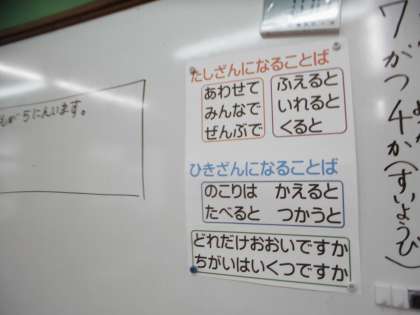 もが 5にんいます。
たしざんになることば
あわせて
みんなで
ぜんぶで
ふえると
いれると
くると
ひきざんになることば
のこりは かえると
たべると つかうと
どれだけおおいですか
ちがいはいくつですか
7がつ4か(すいようび)